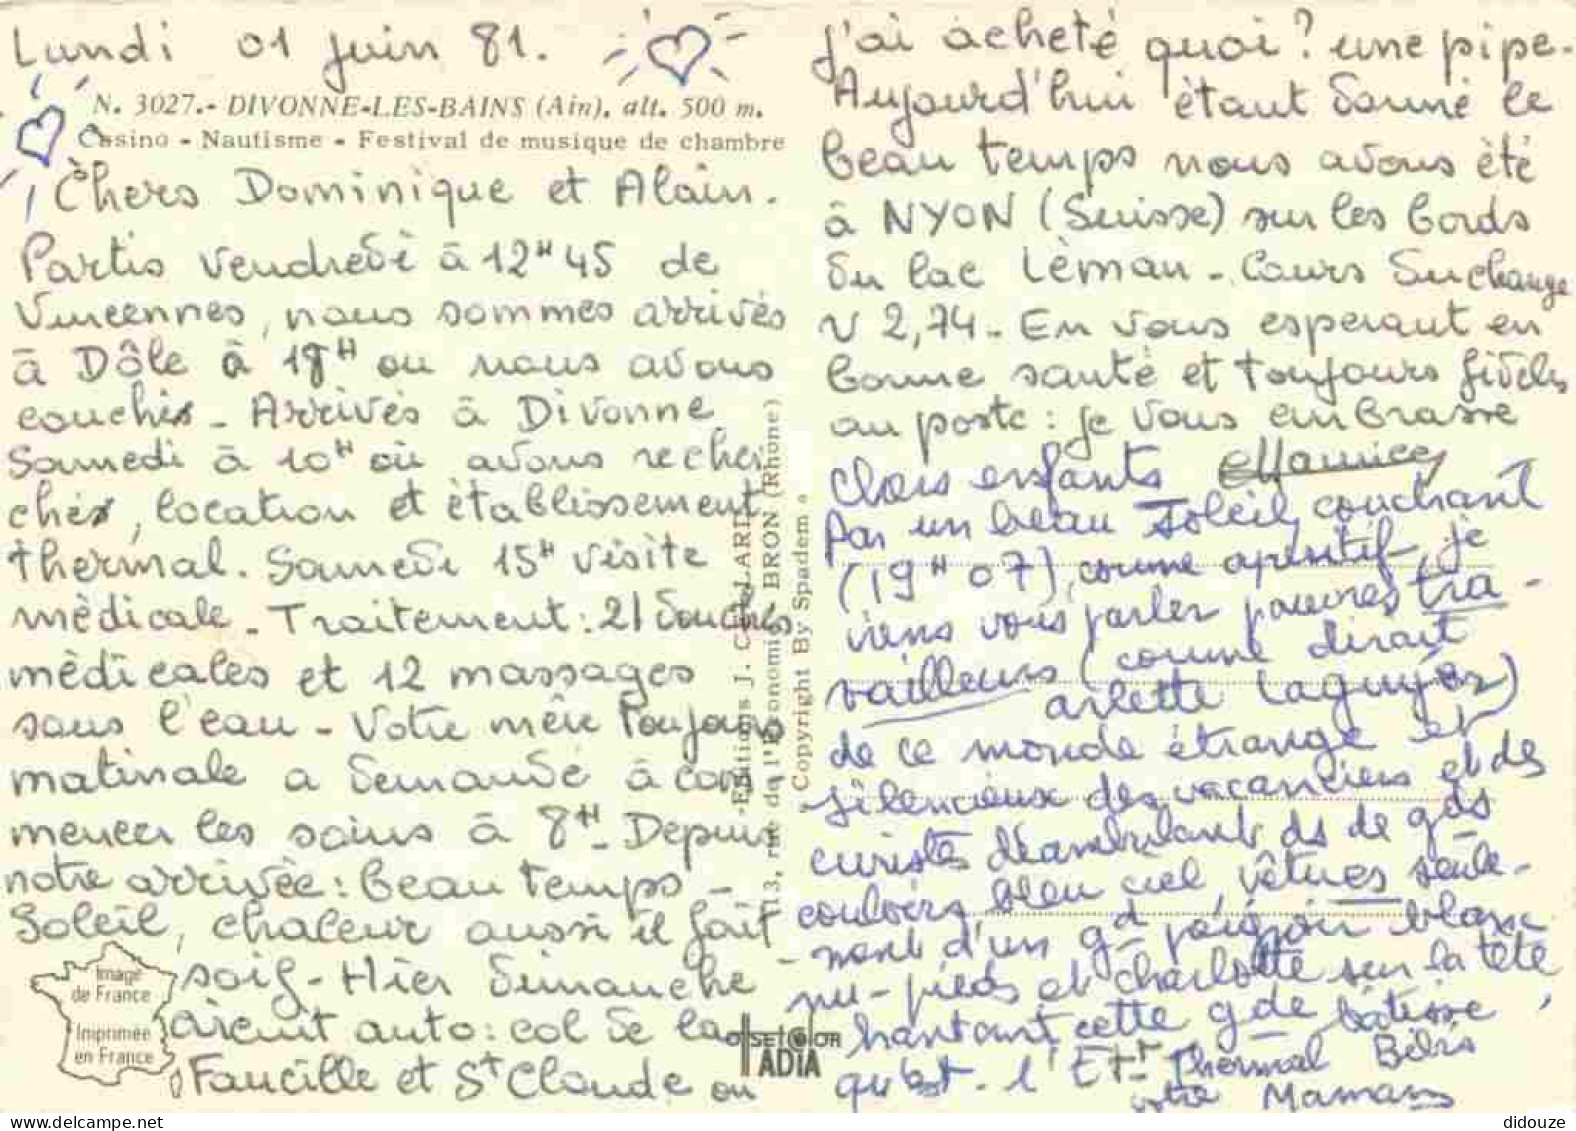 Lundi 01 juin 81.
N. 3027.- DIVONNE-LES-BAINS (Ain), alt. 500 m.
Casino - Nautisme - Festival de musique de chambre
Chers Dominique et Alain.
Partis vendredi à 12H45 de
Vincennes, nous sommes arrivés
à Dôle à 18H ou nous avons
couchés - Arrivés à Divonne
Samedi à 10H où avons recher
chés, location et établissement
thermal. Samedi 15H visite
médicale - Traitement : 21 douches
médicales et 12 massages
sous l'eau - Votre mère toujours
matinale a demandé à com
mencer les soins à 8H - Depuis
notre arrivée : beau temps -
Soleil, chaleur aussi il fait
soif - Hier dimanche
circuit auto : col de la
Faucille et St Claude ou
Image
de France
Imprimée
en France
Editions J. CELLARD
113, rue de l'Economie BRON (Rhône)
Copyright By Spadem
OFFSET COLOR
ADIA
j'ai acheté quoi ? une pipe.
Aujourd'hui étant donné le
beau temps nous avons été
à NYON (Suisse) sur les bords
du lac Léman - Cours du change
2,74 - En vous esperant en
bonne santé et toujours fidèles
au poste : je vous embrasse
Maurice
Chers enfants
Par un beau soleil couchant
(19H07), comme apéritif, je
viens vous parler pauvres tra-
vailleurs (comme dirait
Arlette Laguyer)
de ce monde étrange et
silencieux des vacanciers et des
curistes déambulant ds de gds
couloirs bleu ciel, vêtues seule-
ment d'un gd peignoir blanc
nu-pieds et charlotte sur la tête,
hantant cette gde bâtisse
qu'est - l'Ett Thermal Bibis
votre Maman
didouze